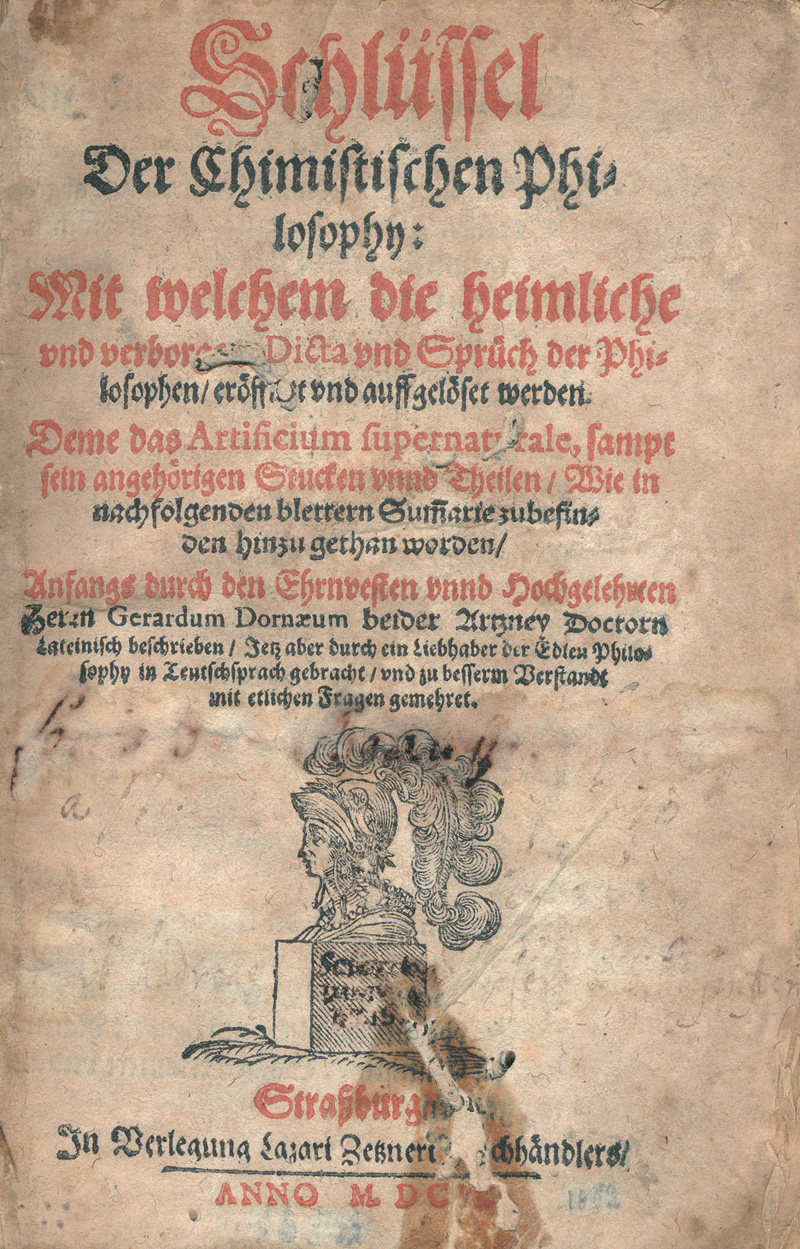 Schlüssel
Der Chimistischen Phi-
losophy:
Mit welchem die heimliche
vnd Dicta vnd Sprüch der Phi-
losophen/ vnd auffgelöset werden.
Deme das Artificium sampt
sein angehörigen Stucken vnnd Theilen / Wie in
nachfolgenden blettern Sum̃arie zubefin-
den hinzu gethan worden/
Anfangs durch den Ehrnvesten vnnd Hochgelehrten
Herrn Gerardum Dornæum beider Artzney Doctorn
Lateinisch beschrieben / Jetz aber durch ein Liebhaber der Edlen Philo-
sophy in Teutschsprach gebracht / vnd zu besserm Verstandt
mit etlichen Fragen gemehret.
Straßburg
In Verlegung Lazari Zetzneri
ANNO M. DC